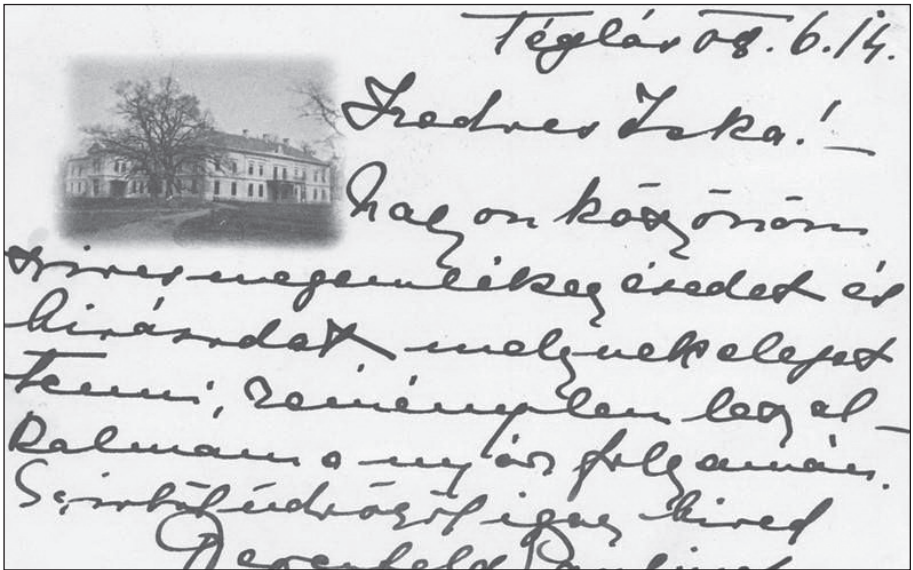 Téglás 08.6.14.
Kedves Iska!
Nagyon köszönöm
szives megemlékezésedet és
kivánsdat melynek eleget
tenni, reménylem lesz al-
kalmam a nyár folyamán.
Szivből üdvözöl igaz hived
Degenfeld